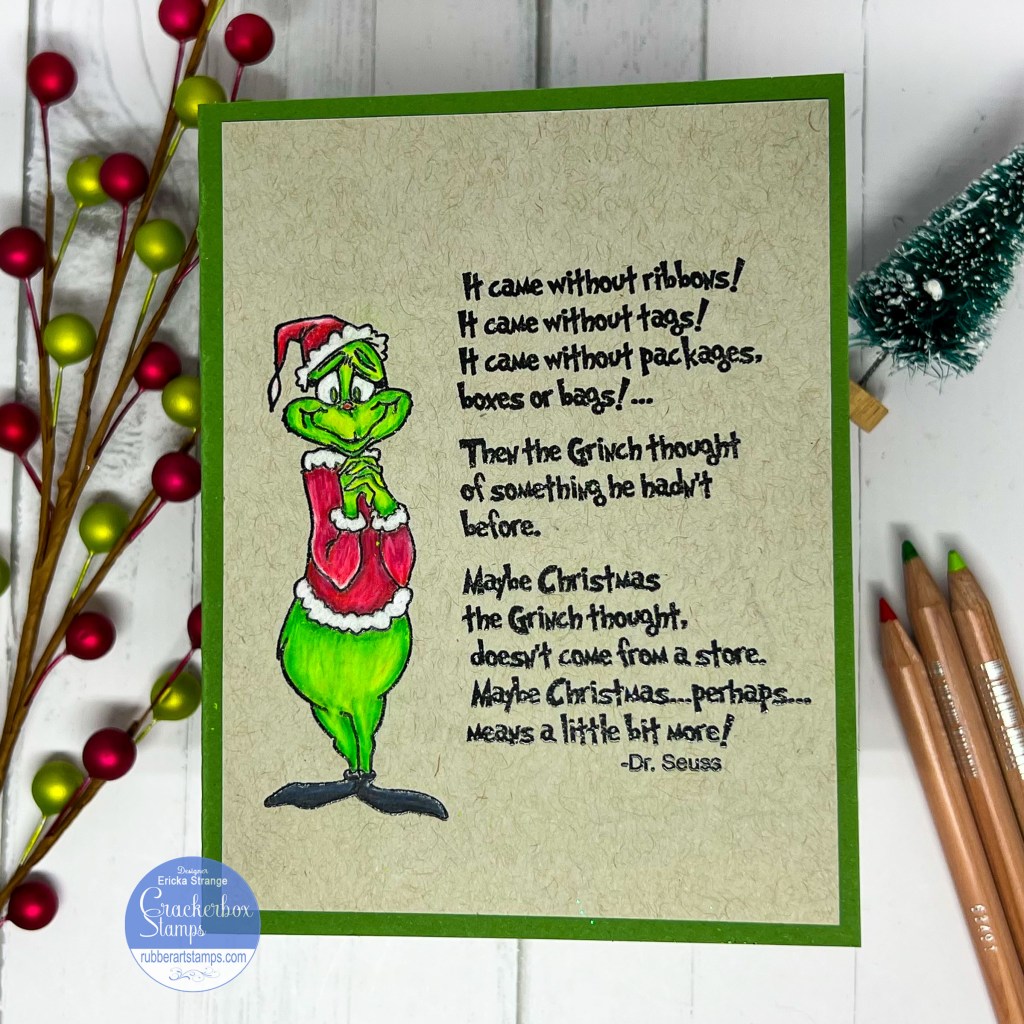 It came without ribbons!
It came without tags!
It came without packages,
boxes or bags!...
Then the Grinch thought
of something he hadn't
before.
Maybe Christmas
the Grinch thought,
doesn't come from a store.
Maybe Christmas...perhaps...
means a little bit more!
-Dr. Seuss
Designer
Ericka Strange
Crackerbox
Stamps
rubberartstamps.com